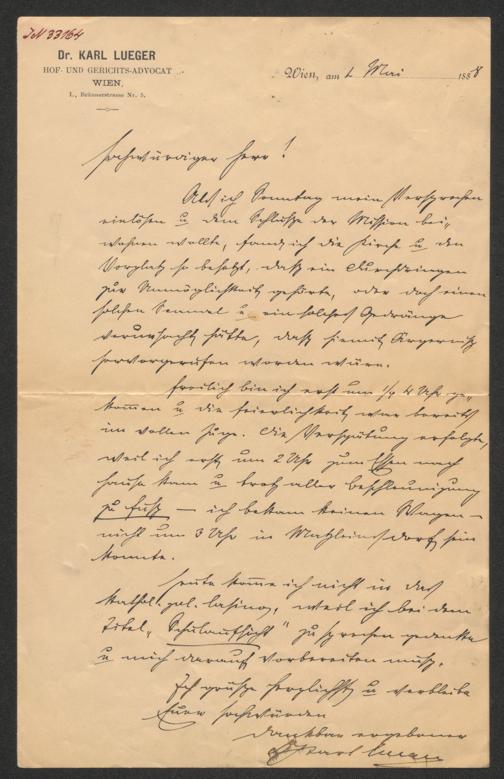 JN 33164
Dr. KARL LUEGER
HOF- UND GERICHTS-ADVOCAT
WIEN,
I., Bräunerstrasse Nr. 5.
Wien, am 1. Mai 1888
Hochwürdiger Herr!
Als ich Sonntag mein Versprechen
einlösen u dem Schluße der Mission bei-
wohnen wollte, fand ich die Kirche u den
Vorplatz so besetzt, daß ein Durchdringen
zur Unmöglichkeit gehörte, oder doch einen
solchen u ein solches Gedränge
verursacht hätte, daß hiemit Ärgerniß
hervorgerufen worden wäre.
Freilich bin ich erst um 1/2 4 Uhr ge-
kommen u die Feierlichkeit war bereits
im vollen Zuge. Die Verspätung erfolgte,
weil ich erst um 2 Uhr zum Essen nach
Hause kam u trotz aller Beschleunigung
zu Fuß — ich bekam keinen Wagen —
nicht um 3 Uhr in Matzleinsdorf sein
konnte.
Heute komme ich nicht in das
kathol. pol. Casino, weil ich bei dem
Titel „Schulaufsicht" zu sprechen gedenke
u mich darauf vorbereiten muß.
Ich grüße herzlichst u verbleibe
Euer Hochwürden
dankbar ergebener
Dr Karl Lueger